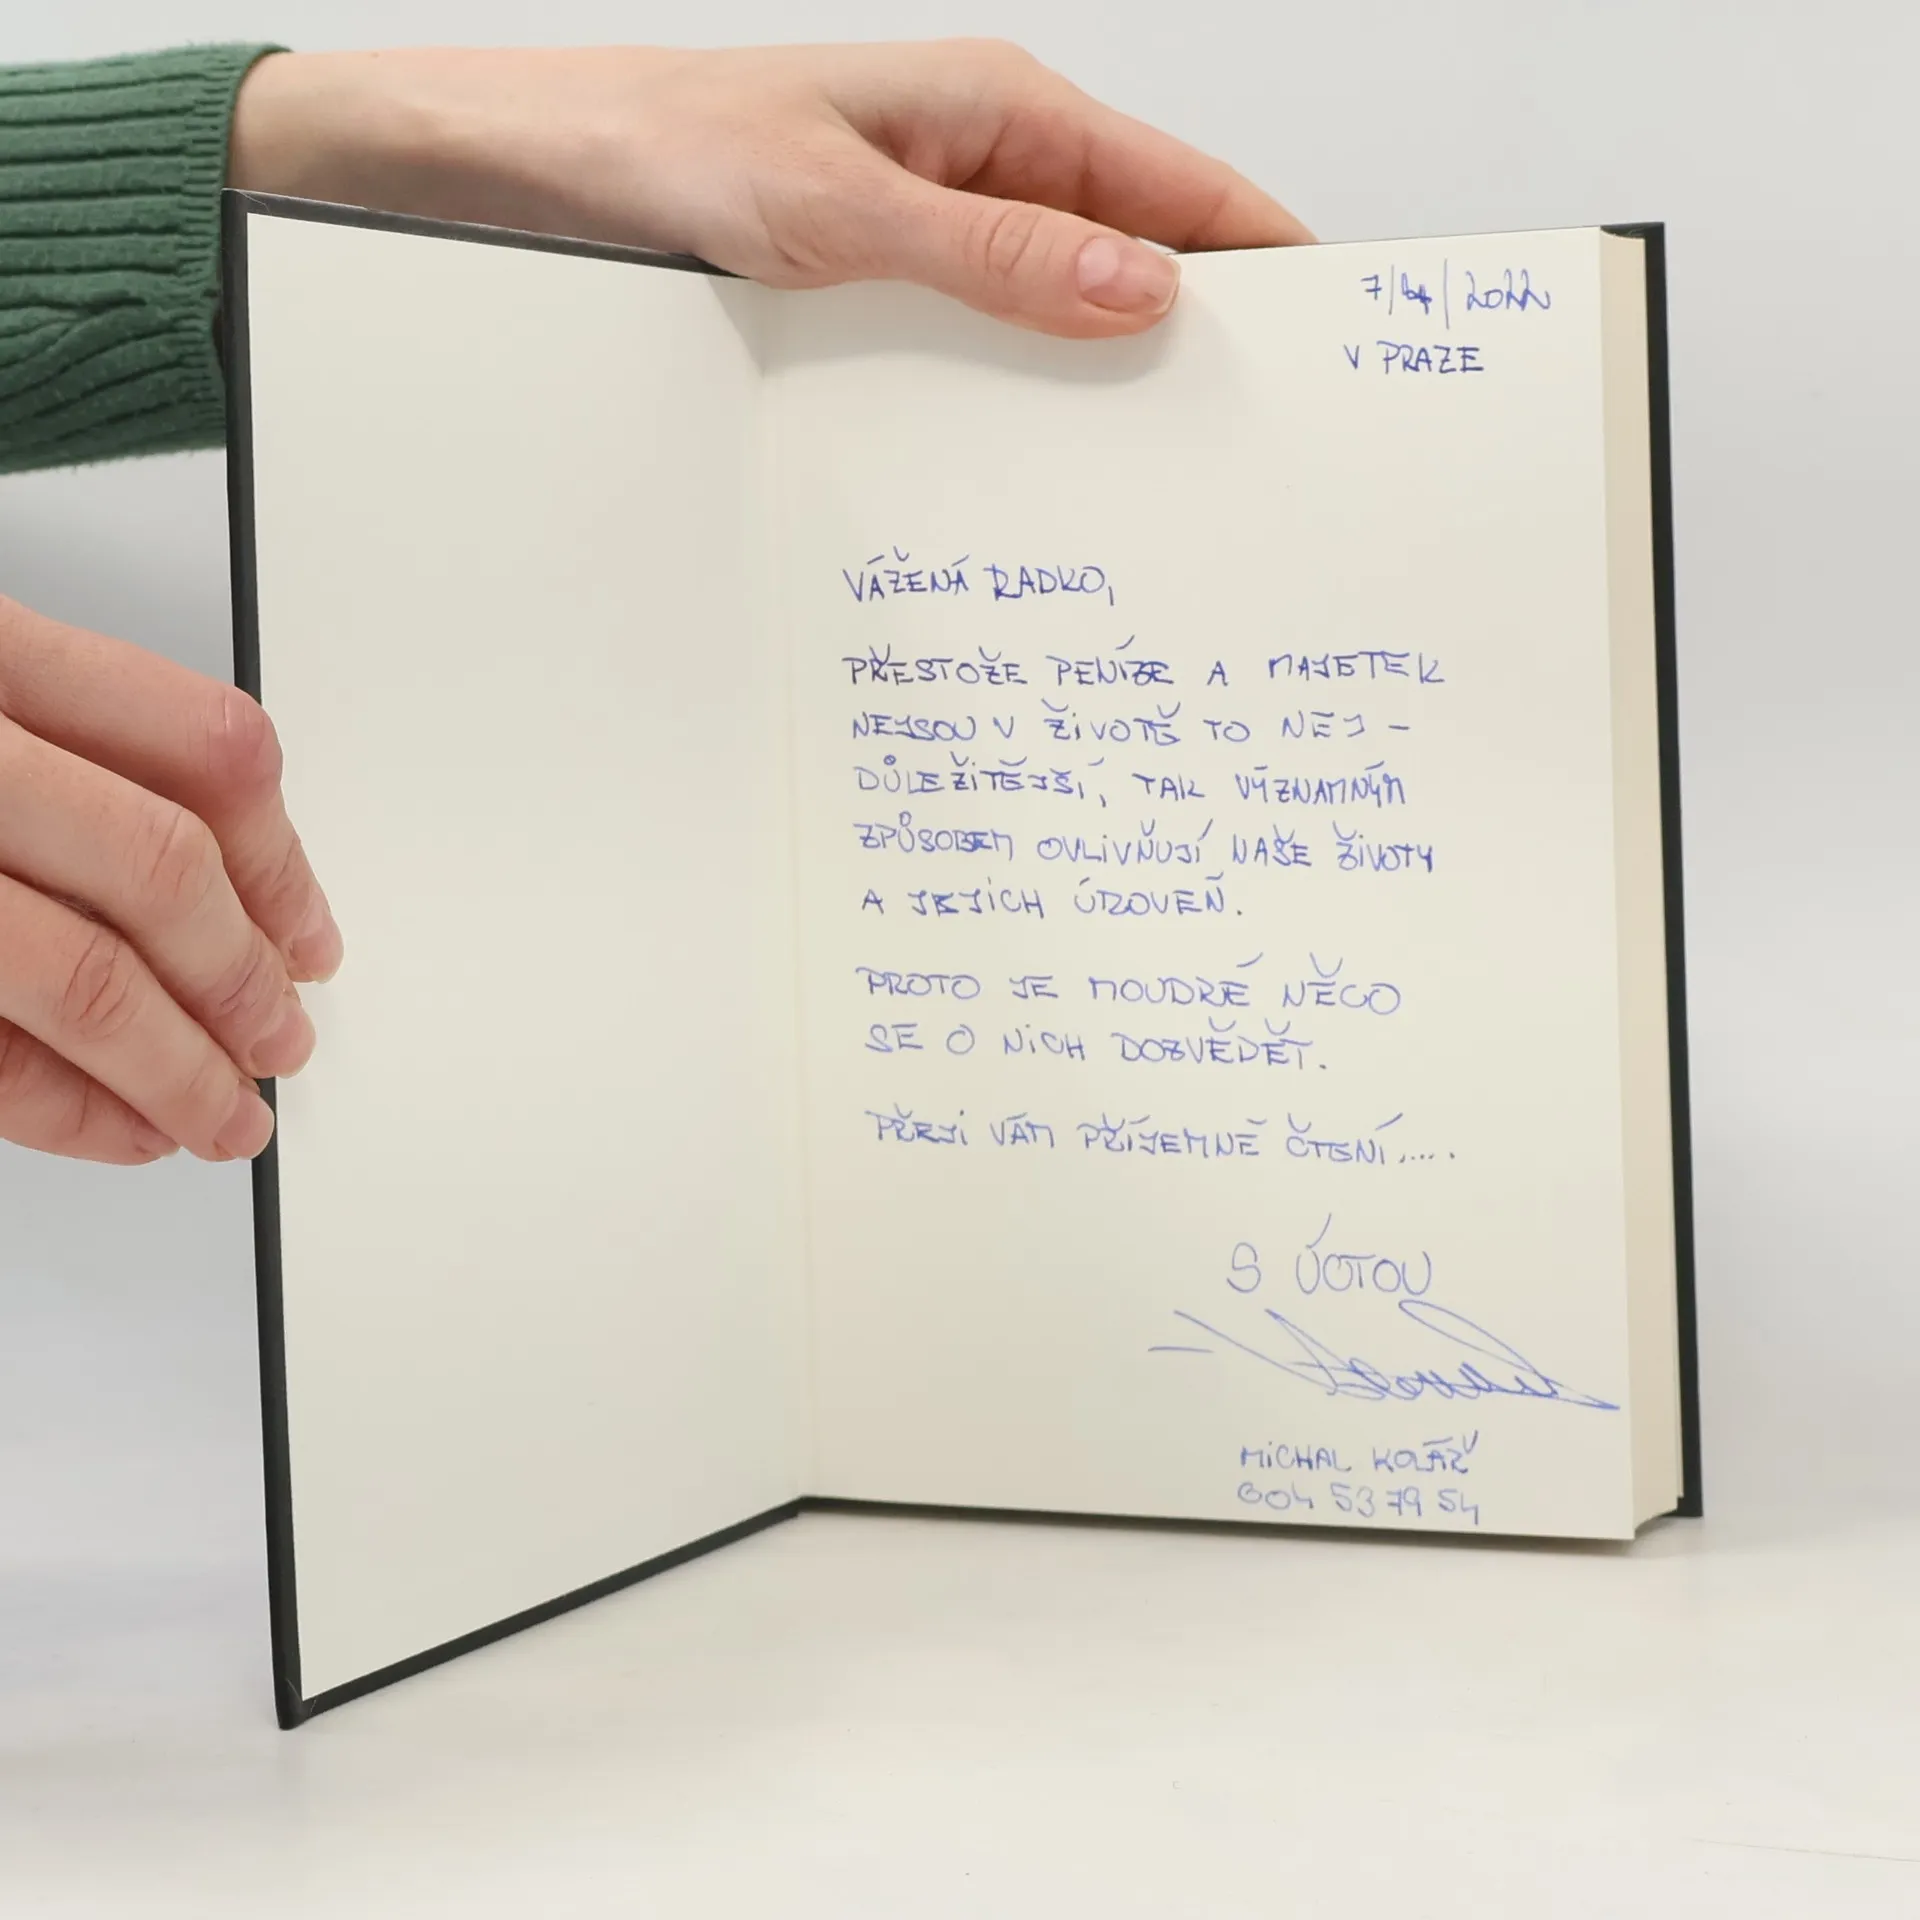 7/4/2022
V PRAZE
VÁŽENÁ RADKO,
PŘESTOŽE PENÍZE A MAJETEK
NEJSOU V ŽIVOTĚ TO NEJ-
DŮLEŽITĚJŠÍ, TAK VÝZNAMNÝM
ZPŮSOBEM OVLIVŇUJÍ NAŠE ŽIVOTY
A JEJICH ÚROVEŇ.
PROTO JE MOUDRÉ NĚCO
SE O NICH DOZVĚDĚT.
PŘEJI VÁM PŘÍJEMNÉ ČTENÍ.....
S ÚCTOU
MICHAL KOLÁŘ
604 53 79 54